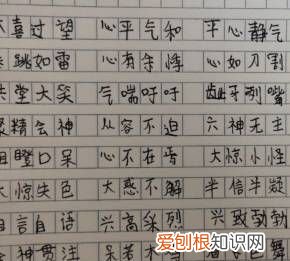 喜过望 心平气和 平心静气
跳如雷 心有余悸 心如刀割
堂大笑 气喘吁吁 龇牙咧嘴
聚精会神 从容不迫 六神无主
目瞪口呆 心不在焉 大惊小怪
大惊失色 大惑不解 半信半疑
自言自语 兴高采烈 兴致勃勃
神贯注 呆若木 色舞
爱刨根知识网